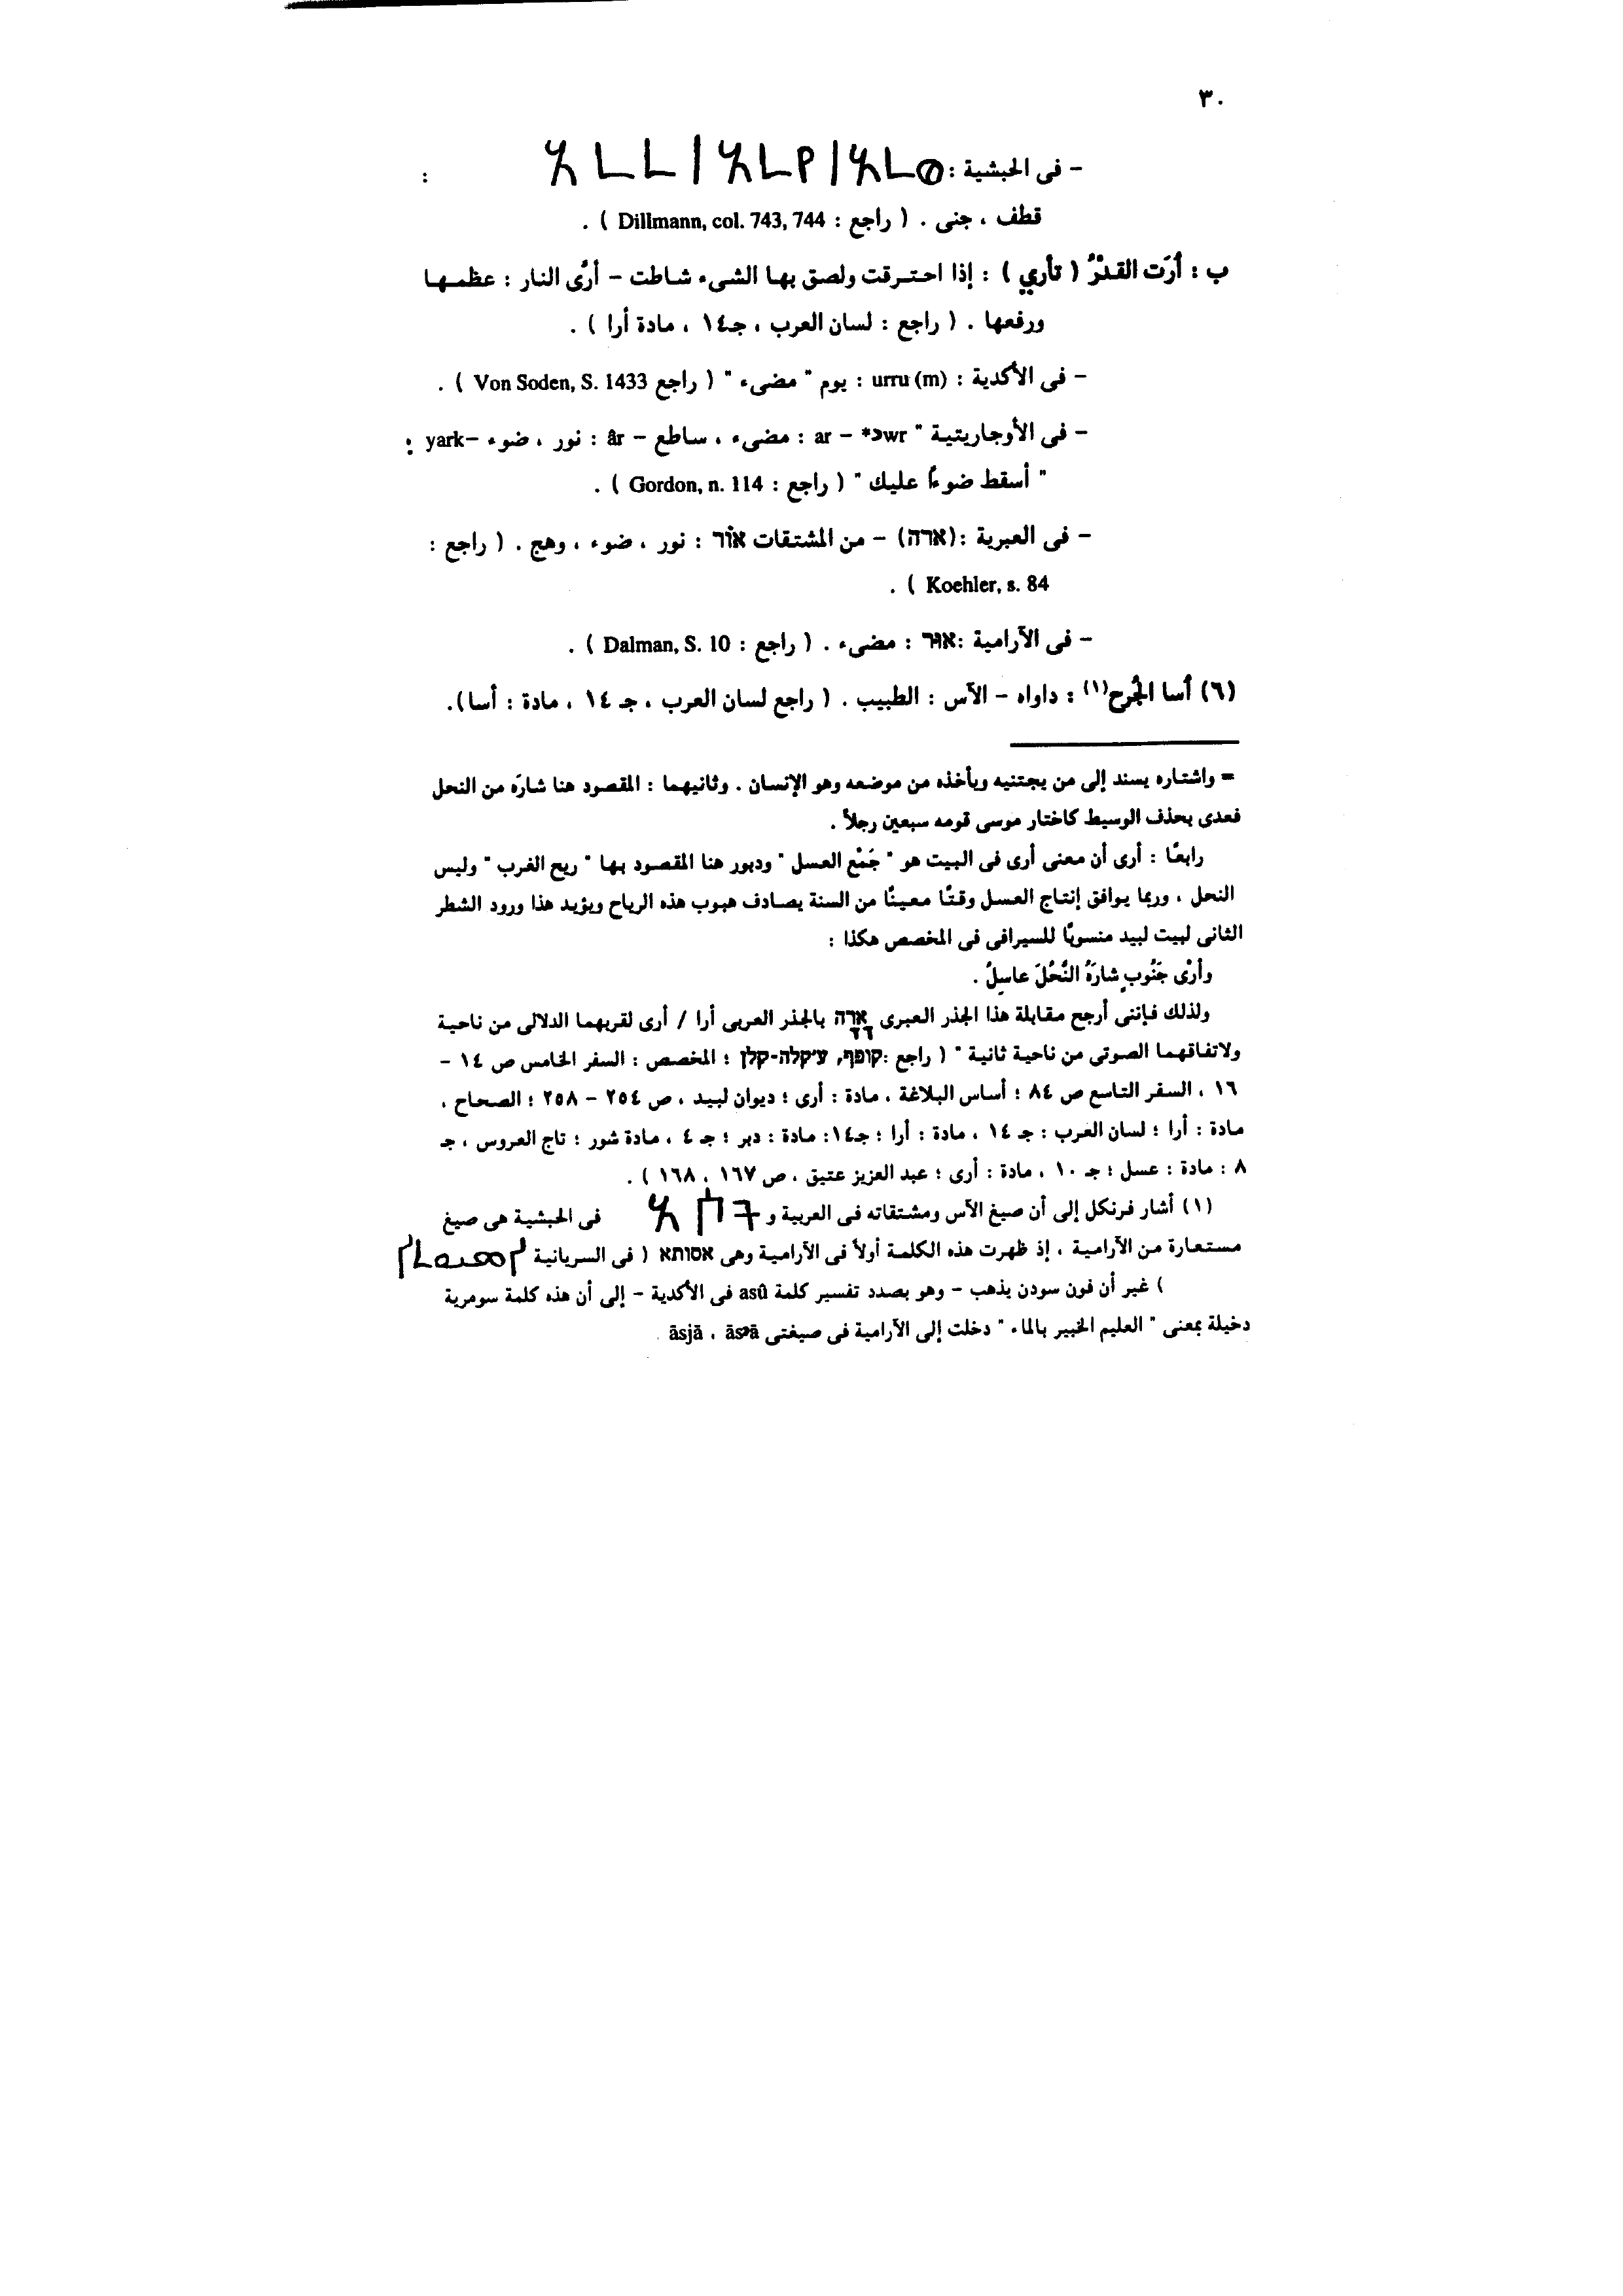 ٣٠
- فى الحبشية : አረረ / አረየ / አረወ :
قطف ، جنى . ( راجع : Dillmann, col. 743, 744 ) .
ب : أرَت القدْرُ ( تأري ) : إذا احترقت ولصق بها الشىء شاطت - أرَّى النار : عظمها
ورفعها . ( راجع : لسان العرب ، جـ١٤ ، مادة أرا ) .
- فى الأكدية : urru (m) : يوم " مضىء " ( راجع Von Soden, S. 1433 ) .
- فى الأوجاريتية " ar - *ɔwr : مضىء ، ساطع - âr : نور ، ضوء -yark :
" أسقط ضوءًا عليك " ( راجع : Gordon, n. 114 ) .
- فى العبرية :(ארה) - من المشتقات אוֹר : نور ، ضوء ، وهج . ( راجع :
Koehler, s. 84 ) .
- فى الآرامية :אוּר : مضىء . ( راجع : Dalman, S. 10 ) .
(٦) أسا الجُرح(١) : داواه - الآس : الطبيب . ( راجع لسان العرب ، جـ ١٤ ، مادة : أسا).
= واشتاره يسند إلى من يجتنيه ويأخذه من موضعه وهو الإنسان . وثانيهما : المقصود هنا شارَه من النحل
فعدى بحذف الوسيط كاختار موسى قومه سبعين رجلاً .
رابعًا : أرى أن معنى أرى فى البيت هو " جَمْع العسل " ودبور هنا المقصود بها " ريح الغرب " وليس
النحل ، وربما يوافق إنتاج العسل وقتًا معينًا من السنة يصادف هبوب هذه الرياح ويؤيد هذا ورود الشطر
الثانى لبيت لبيد منسوبًا للسيرافى فى المخصص هكذا :
وأرْى جَنُوبٍ شارَهُ النَّحْلَ عاسِلُ .
ولذلك فإننى أرجح مقابلة هذا الجذر العبرى אָרָה بالجذر العربى أرا / أرى لقربهما الدلالى من ناحية
ولاتفاقهما الصوتى من ناحية ثانية " ( راجع : ; المخصص : السفر الخامس ص ١٤ -
١٦ ، السفر التاسع ص ٨٤ ؛ أساس البلاغة ، مادة : أرى ؛ ديوان لبيد ، ص ٢٥٤ - ٢٥٨ ؛ الصحاح ،
مادة : أرا ؛ لسان العرب : جـ ١٤ ، مادة : أرا ؛ جـ١٤: مادة : دبر ؛ جـ ٤ ، مادة شور ؛ تاج العروس ، جـ
٨ : مادة : عسل ؛ جـ ١٠ ، مادة : أرى ؛ عبد العزيز عتيق ، ص ١٦٧ ، ١٦٨ ) .
(١) أشار فرنكل إلى أن صيغ الآس ومشتقاته فى العربية و فى الحبشية هى صيغ
مستعارة من الآرامية ، إذ ظهرت هذه الكلمة أولاً فى الآرامية وهى אסותא ( فى السريانية
) غير أن فون سودن يذهب - وهو بصدد تفسير كلمة asû فى الأكدية - إلى أن هذه كلمة سومرية
دخيلة بمعنى " العليم الخبير بالماء " دخلت إلى الآرامية فى صيغتى āsjā ، āsɔā